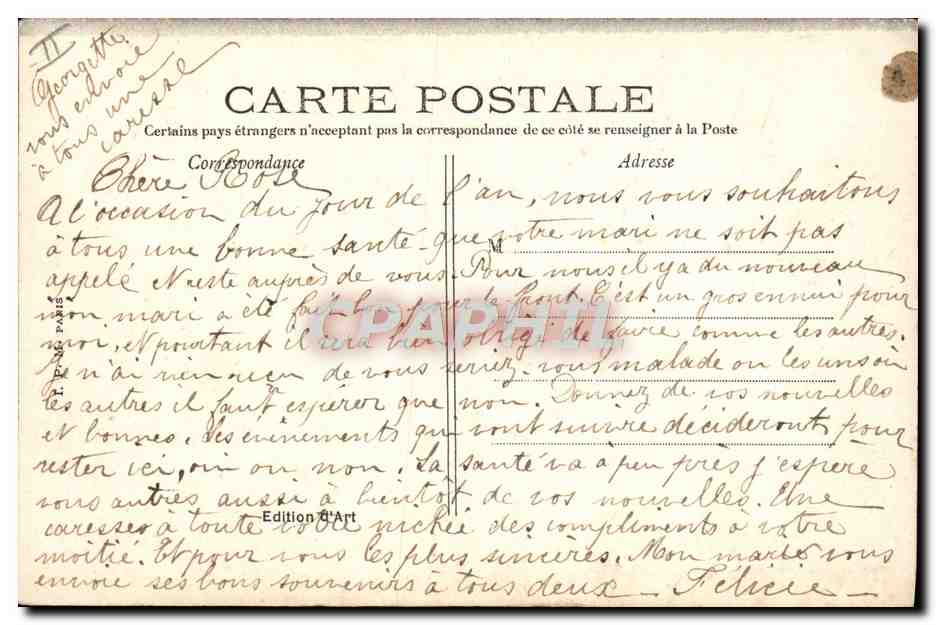 II
Georgette
vous envoie
à tous une
caresse
CARTE POSTALE
Certains pays étrangers n'acceptant pas la correspondance de ce côté se renseigner à la Poste
Correspondance
Adresse
Chère Rose
A l'occasion du jour de l'an, nous vous souhaitons
à tous une bonne santé que votre mari ne soit pas
M
appelé et reste auprès de vous. Pour nous il y a du nouveau
mon mari a été fait bon pour le front. C'est un gros ennui pour
moi, et pourtant il sera bien obligé de suivre comme les autres.
Je n'ai rien reçu de vous seriez-vous malade ou les uns ou
les autres il faut espérer que non. Donnez de vos nouvelles
et bonnes. Les évènements qui vont suivre décideront pour
rester ici, oui ou non. La santé va à peu près j'espère
vous autres aussi à bientôt de vos nouvelles. Une
caresses à toute votre nichée des compliments à votre
Edition d'Art
moitié. Et pour vous les plus sincères. Mon mari vous
envoie ses bons souvenirs à tous deux - Félicie -
PARIS
CPAPHIL